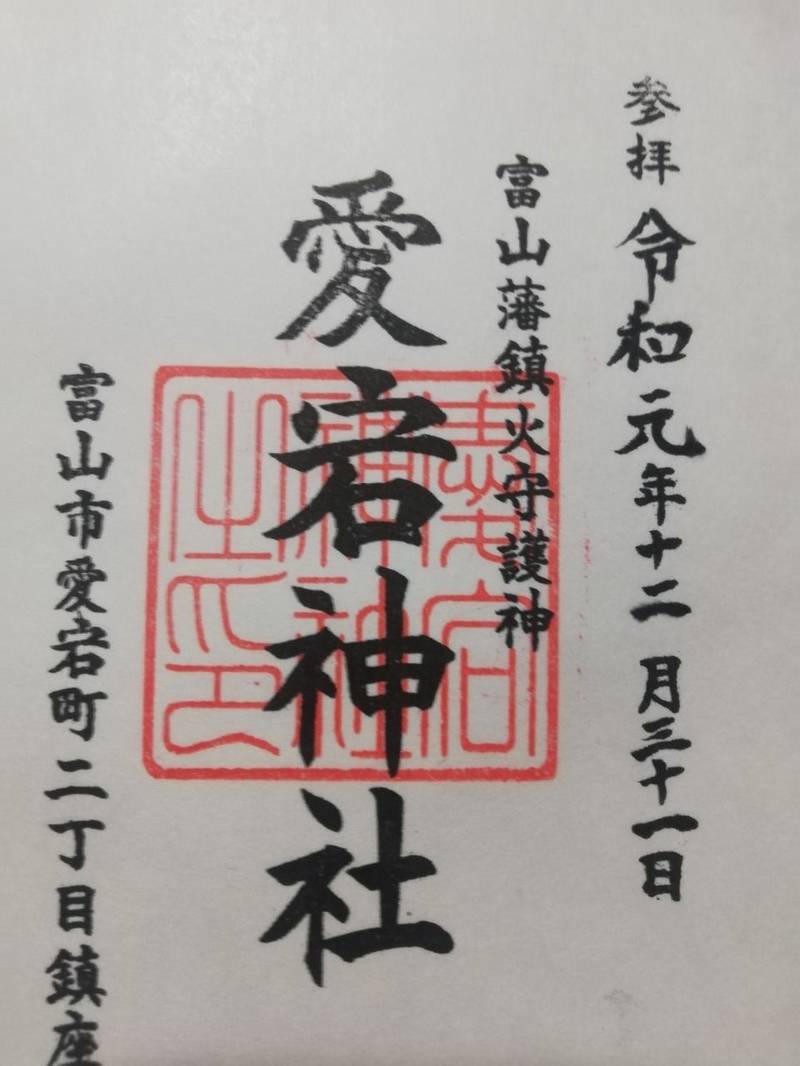 参拝 令和元年十二月三十一日
富山藩鎮火守護神
愛宕神社
愛宕神社之印
富山市愛宕町二丁目鎮座